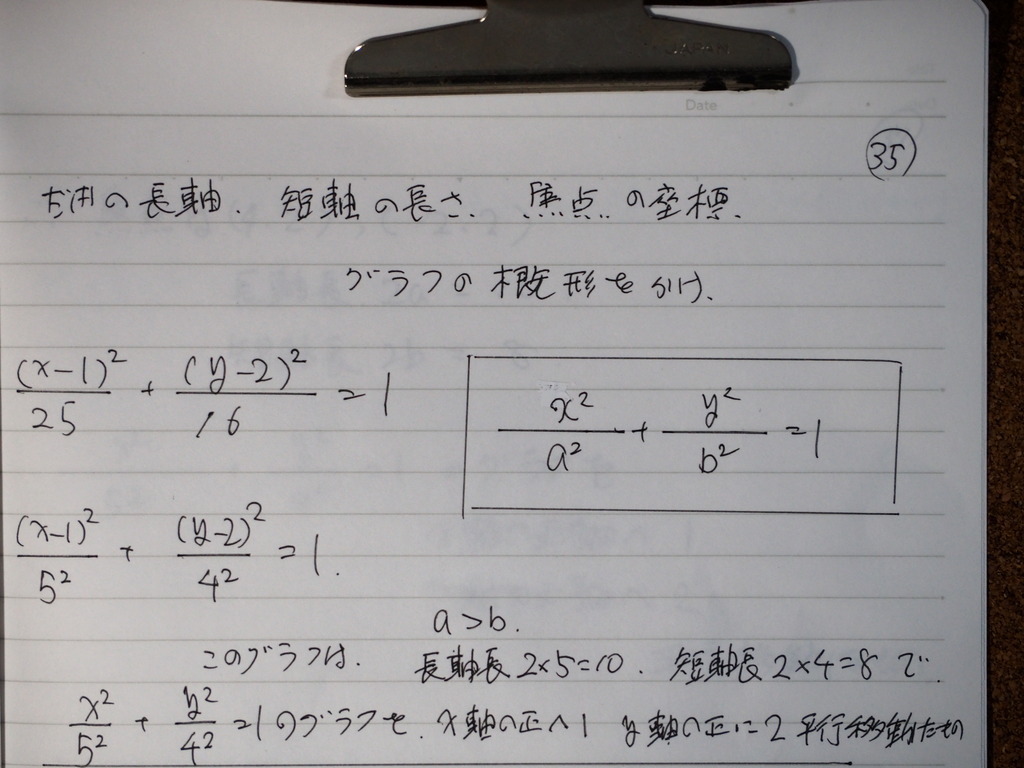 JAPAN
Date
㉟
だ円の長軸、短軸の長さ、焦点の座標、
グラフの概形をかけ、
(x-1)²/25 + (y-2)²/16 = 1
x²/a² + y²/b² = 1
(x-1)²/5² + (y-2)²/4² = 1.
a>b.
このグラフは、長軸長2×5=10、短軸長2×4=8で
x²/5² + y²/4² = 1のグラフを、x軸の正へ1 y軸の正に2平行移動たもの